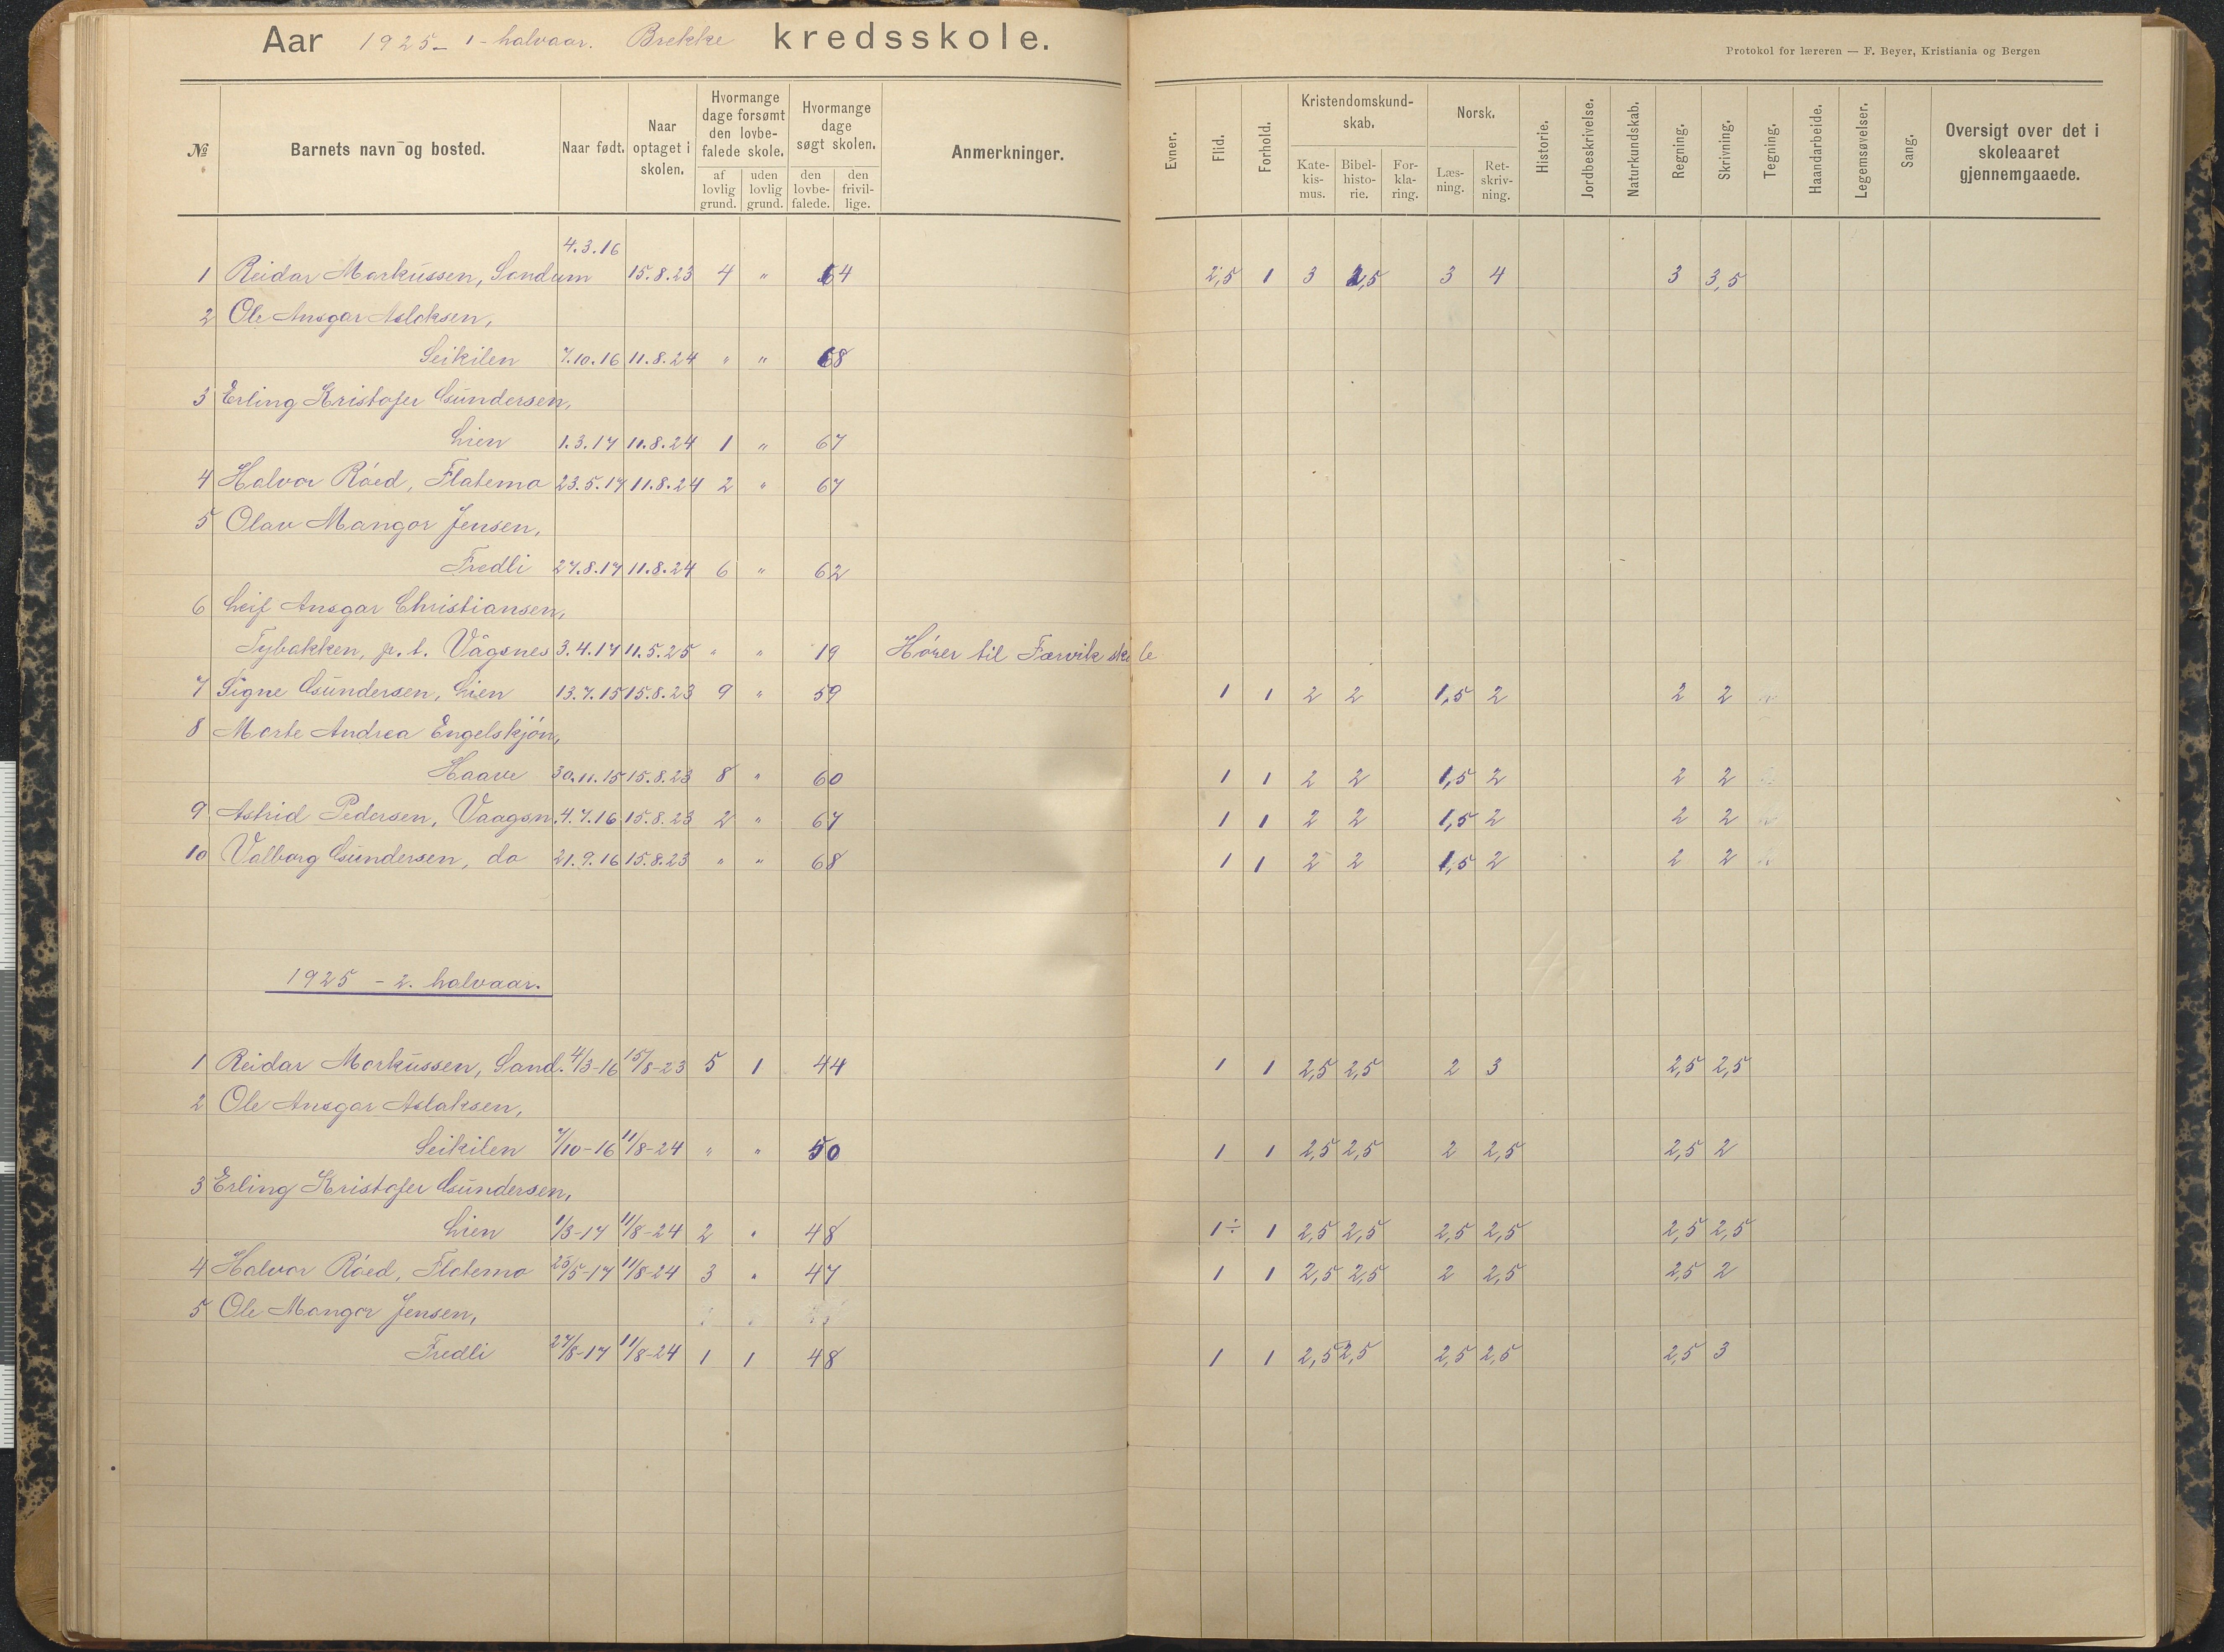 Aar 1925 - 1 - halvaar. Brekke kredsskole.
Protokol for læreren — F. Beyer, Kristiania og Bergen
№ Barnets navn og bosted. Naar født. Naar optaget i skolen. Hvormange dage forsømt den lovbefalede skole. af lovlig grund. uden lovlig grund. Hvormange dage søgt skolen. den lovbefalede. den frivillige. Anmerkninger. Evner. Flid. Forhold. Kristendomskundskab. Katekismus. Bibelhistorie. Forklaring. Norsk. Læsning. Retskrivning. Historie. Jordbeskrivelse. Naturkundskab. Regning. Skrivning. Tegning. Haandarbeide. Legemsøvelser. Sang. Oversigt over det i skoleaaret gjennemgaaede.
4.3.16
1 Reidar Markussen, Sandum 15.8.23 4 " 64 2,5 1 3 2,5 3 4 3 3,5
2 Ole Ansgar Aslaksen,
Seikilen 7.10.16 11.8.24 " " 68
3 Erling Kristofer Gundersen,
Lien 1.3.17 11.8.24 1 " 67
4 Halvor Röed, Flatemo 23.5.17 11.8.24 2 " 67
5 Olav Mangor Jensen,
Fredli 27.8.17 11.8.24 6 " 62
6 Leif Ansgar Christiansen,
Tybakken, p.t. Vågsnes 3.4.17 11.5.25 " " 19 Hører til Færvik skole
7 Signe Gundersen, Lien 13.7.15 15.8.23 9 " 59 1 1 2 2 1,5 2 2 2
8 Marte Andrea Engelskjön,
Haave 30.11.15 15.8.23 8 " 60 1 1 2 2 1,5 2 2 2
9 Astrid Pedersen, Vaagsn. 4.7.16 15.8.23 2 " 67 1 1 2 2 1,5 2 2 2
10 Valborg Gundersen, do 21.9.16 15.8.23 " " 68 1 1 2 2 1,5 2 2 2
1925 - 2. halvaar.
1 Reidar Markussen, Sand. 4/3-16 15/8-23 5 1 44 1 1 2,5 2,5 2 3 2,5 2,5
2 Ole Ansgar Aslaksen,
Seikilen 7/10-16 11/8-24 " " 50 1 1 2,5 2,5 2 2,5 2,5 2
3 Erling Kristofer Gundersen,
Lien 1/3-17 11/8-24 2 " 48 1÷ 1 2,5 2,5 2,5 2,5 2,5 2,5
4 Halvor Röed, Flatemo 23/5-17 11/8-24 3 " 47 1 1 2,5 2,5 2 2,5 2,5 2
5 Ole Mangor Jensen,
Fredli 27/8-17 11/8-24 1 1 48 1 1 2,5 2,5 2,5 2,5 2,5 3